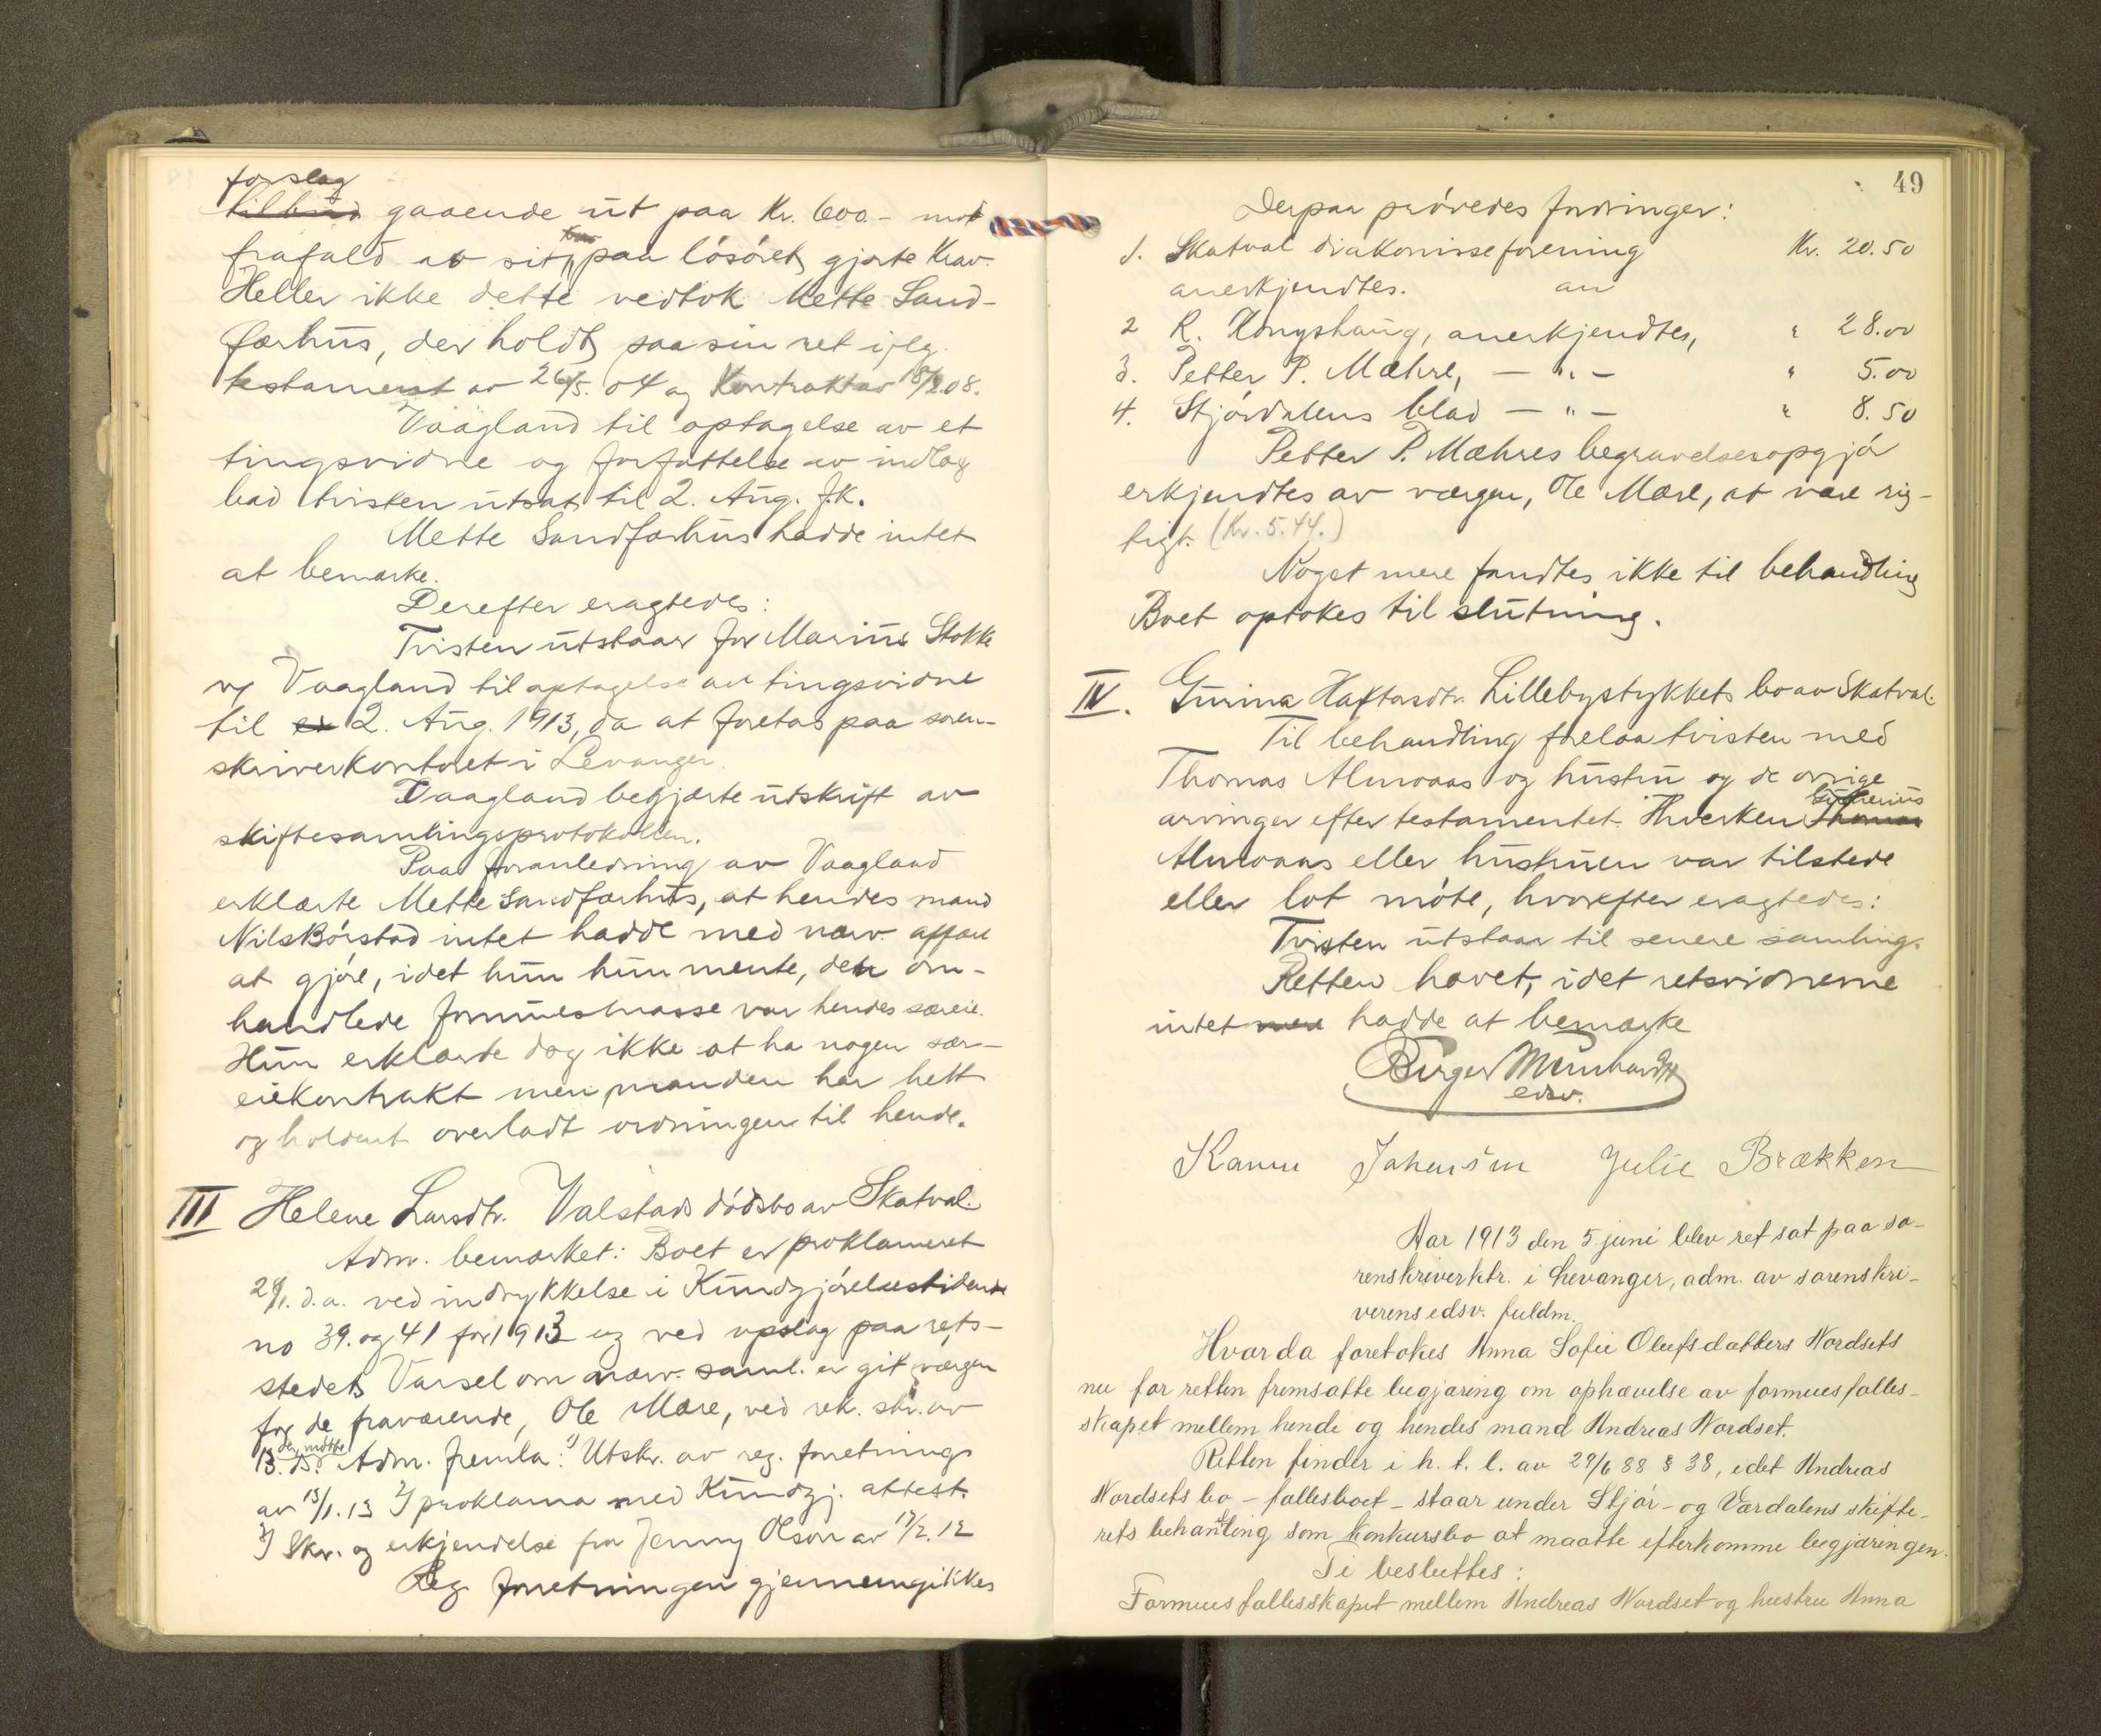 forslag
tilbud gaaende ut paa Kr. 600.- mot
frafald av sit krav paa løsøret gjorte Krav.
Heller ikke dette vedtok Mette Sand-
færhus, der holdt paa sin ret iflg.
testament av 26/5. 04 og Kontrakt av 18/2 08.
Vaagland til optagelse av et
tingsvidne og forfattelse av indlæg
bad tvisten utsat til 2. Aug. f.k.
Mette Sandfærhus hadde intet
at bemærke.
Derefter eragtedes:
Tvisten utstaar for Marius Stokke
v/ Vaagland til optagelse av tingsvidne
til 2. Aug. 1913, da at foretas paa soren-
skriverkontoret i Levanger.
Vaagland begjærte utskrift av
skiftesamlingsprotokollen.
Paa foranledning av Vaagland
erklærte Mette Sandfærhus, at hendes mand
Nils Børstad intet hadde med nærv. affære
at gjøre, idet hun hun mente, den om-
handlede formuesmasse var hendes særeie.
Hun erklærte dog ikke at ha nogen sær-
eiekontrakt men manden har helt
og holdent overladt ordningen til hende.
III Helene Larsdtr. Valstads dødsbo av Skatval.
Adm. bemærket: Boet er proklameret
29/1. d.a. ved indrykkelse i Kundgjørelsestidende
no 39. og 41 for 1913 og ved opslag paa rets-
stedet. Varsel om nærv. saml. er git værgen
for de fraværende, Ole Mære, ved rek. skr. av
13. ds. der møtte Adm. fremla: 1) Utskr. av reg. forretnings
av 13/1. 13 2) proklama med Kundgj. attest.
3) Skr. og erkjendelse fra Jenny Olson av 17/2. 12
Reg. forretningen gjennemgikkes
49
Derpaa prøvedes fordringer:
1. Skatval diakonisseforening Kr. 20.50
anerkjendtes. an
2 R. Kongshaug, anerkjendtes, " 28.00
3. Petter P. Mæhre, — " — " 5.00
4. Stjørdalens blad — " — " 8.50
Petter P. Mæhres begravelsesopgjør
erkjendtes av værgen, Ole Mære, at være rig-
tigt. (Kr. 5.44.)
Noget mere fandtes ikke til behandling
Boet optokes til slutning.
IV. Gurina Haftorsdtr. Lillebystykkets bo av Skatval.
Til behandling forelaa tvisten med
Thomas Almoaas og hustru og de øvrige
arvinger efter testamentet. Hverken Thomas
Almoaas eller hustruen var tilstede
eller lot møte, hvorefter eragtedes:
Tvisten utstaar til senere samling.
Retten hævet, idet retsvidnerne
intet mere hadde at bemærke
Birger Meinhardt
edsv.
Karen Johansen Julie Brækken
Aar 1913 den 5 juni blev ret sat paa so-
renskriverktr. i Levanger, adm. av sorenskri-
verens edsv. fuldm.
Hvorda foretokes Anna Sofie Olufsdatters Nordsets
nu for retten fremsatte begjæring om ophævelse av formuesfælles-
skapet mellem hende og hendes mand Andreas Nordset.
Retten finder i h. t. l. av 29/6 88 § 38, idet Andreas
Nordsets bo - fællesboet - staar under Stjør- og Værdalens skifte-
rets behandling som konkursbo at maatte efterkomme begjæringen.
Ti besluttes:
Formuesfællesskapet mellem Andreas Nordset og hustru Anna